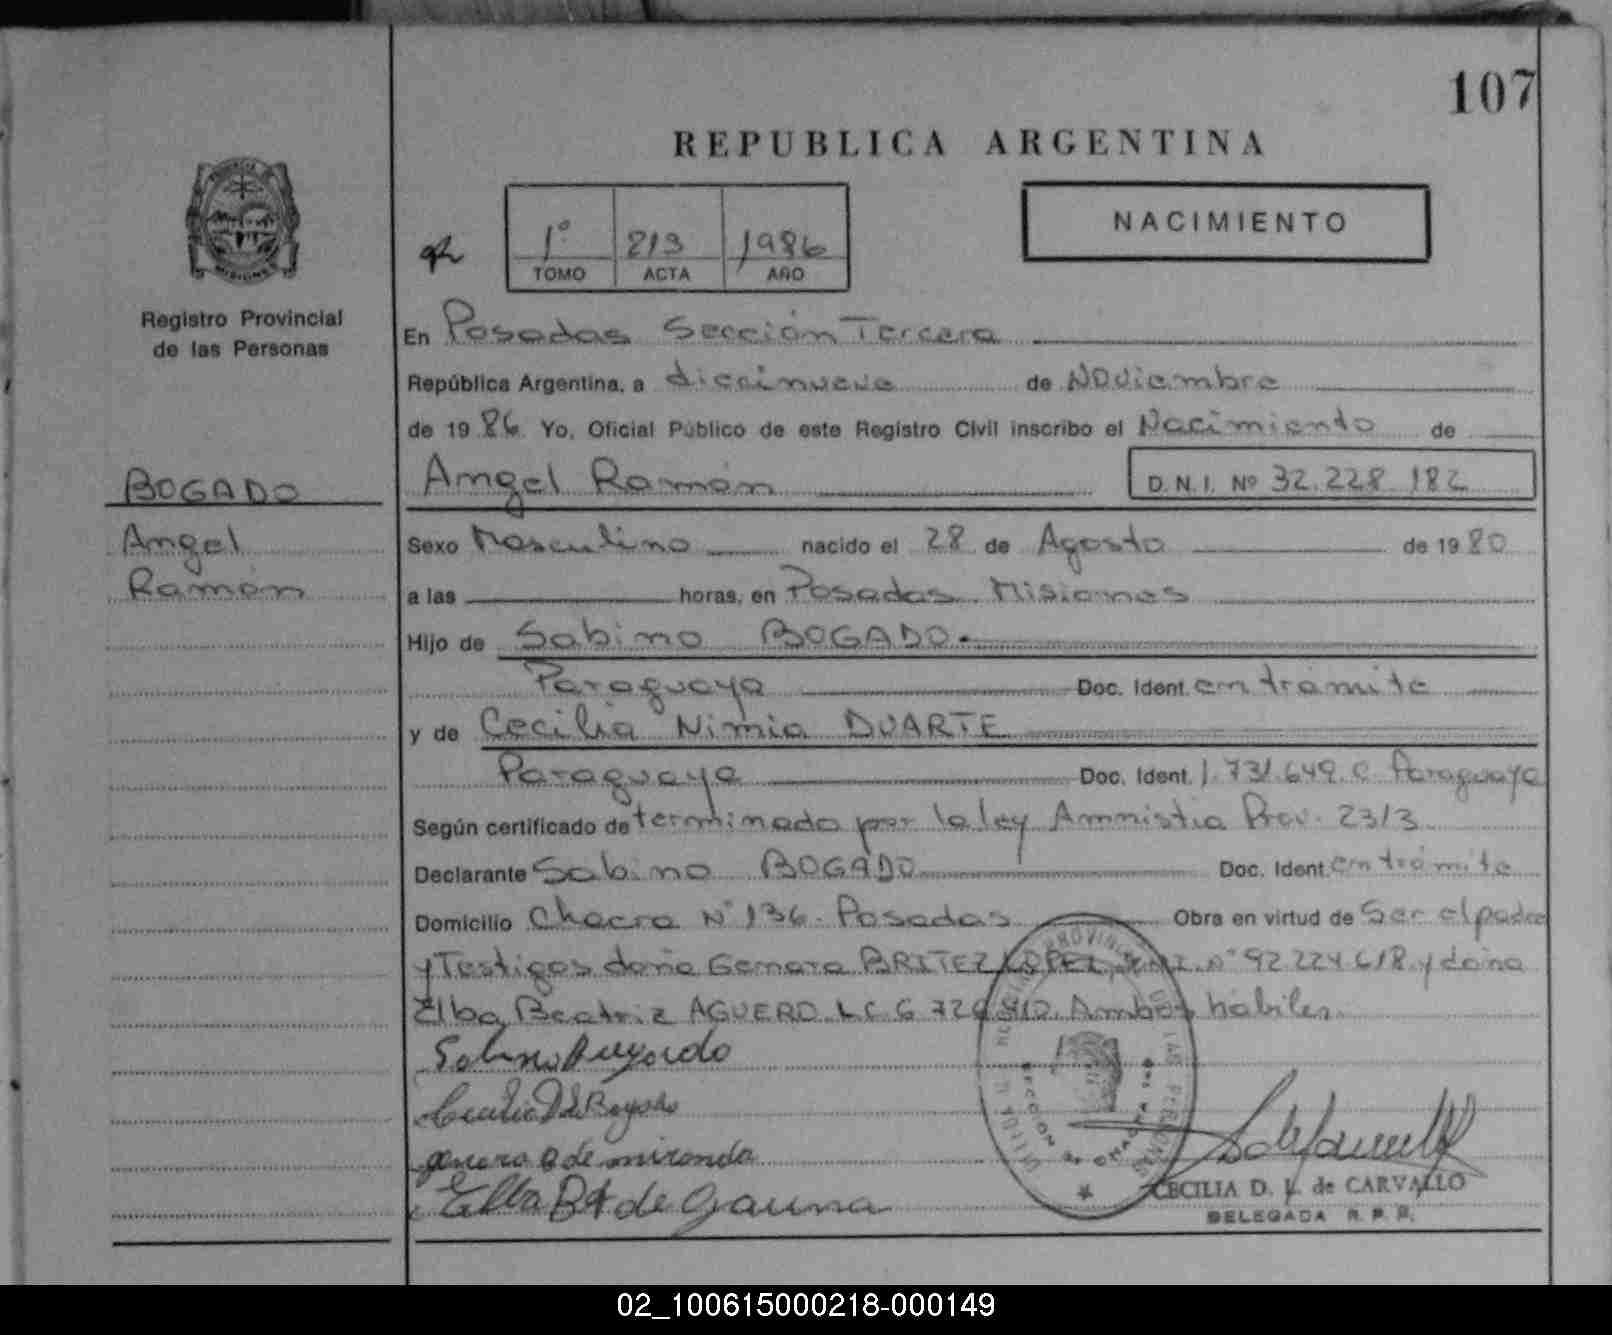 107
REPUBLICA ARGENTINA
NACIMIENTO
1º 213 1986
TOMO ACTA AÑO
PROVINCIA DE MISIONES
Registro Provincial
de las Personas
En Posadas Sección Tercera
República Argentina, a diecinueve de Noviembre
de 1986. Yo, Oficial Público de este Registro Civil inscribo el Nacimiento de
BOGADO
Angel Ramón D.N.I. Nº 32.228.182
Angel
Ramón
Sexo Masculino nacido el 28 de Agosto de 1980
a las horas, en Posadas Misiones
Hijo de Sabino BOGADO.
Paraguaya Doc. Ident. en trámite
y de Cecilia Nimia DUARTE
Paraguaya Doc. Ident. 1.731.649. C. Paraguaya
Según certificado de terminado por la ley Amnistia Prov. 2313
Declarante Sabino BOGADO Doc. Ident. en trámite
Domicilio Chacra Nº 136. Posadas Obra en virtud de Ser el padre
y Testigos doña Genara BRITEZ LOPEZ, D.N.I. Nº 92.224.618 y doña
Elba Beatriz AGUERO L.C. 6.726. Ambos hábiles.
Sabino Bogado
Cecilia D de Bogado
genara B de miranda
Elba BA de Gauna
CECILIA D. L. de CARVALLO
DELEGADA R. P. P.
02_100615000218-000149